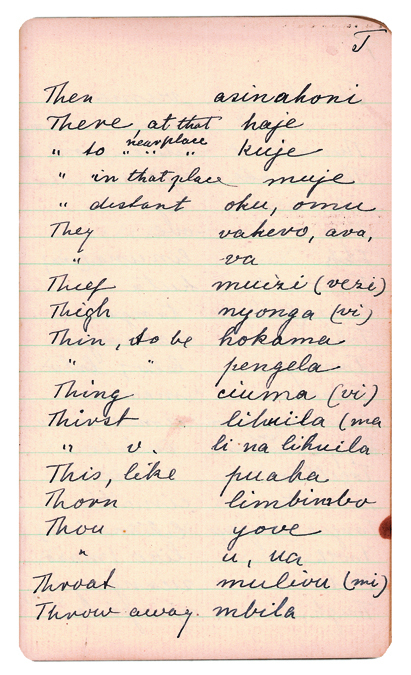 T
Then asinahoni
There, at that haje
" to near place " " " kuje
" in that place muje
" distant oku, omu
They vakevo, ava,
" va
Thief muizi (vezi)
Thigh nyonga (vi)
Thin, to be hokama
" " pengela
Thing ciuma (vi)
Thirst lihuila (ma
" v. li na lihuila
This, like puaha
Thorn limbimbo
Thou yove
" u, ua
Throat mulivu (mi)
Throw away. mbila